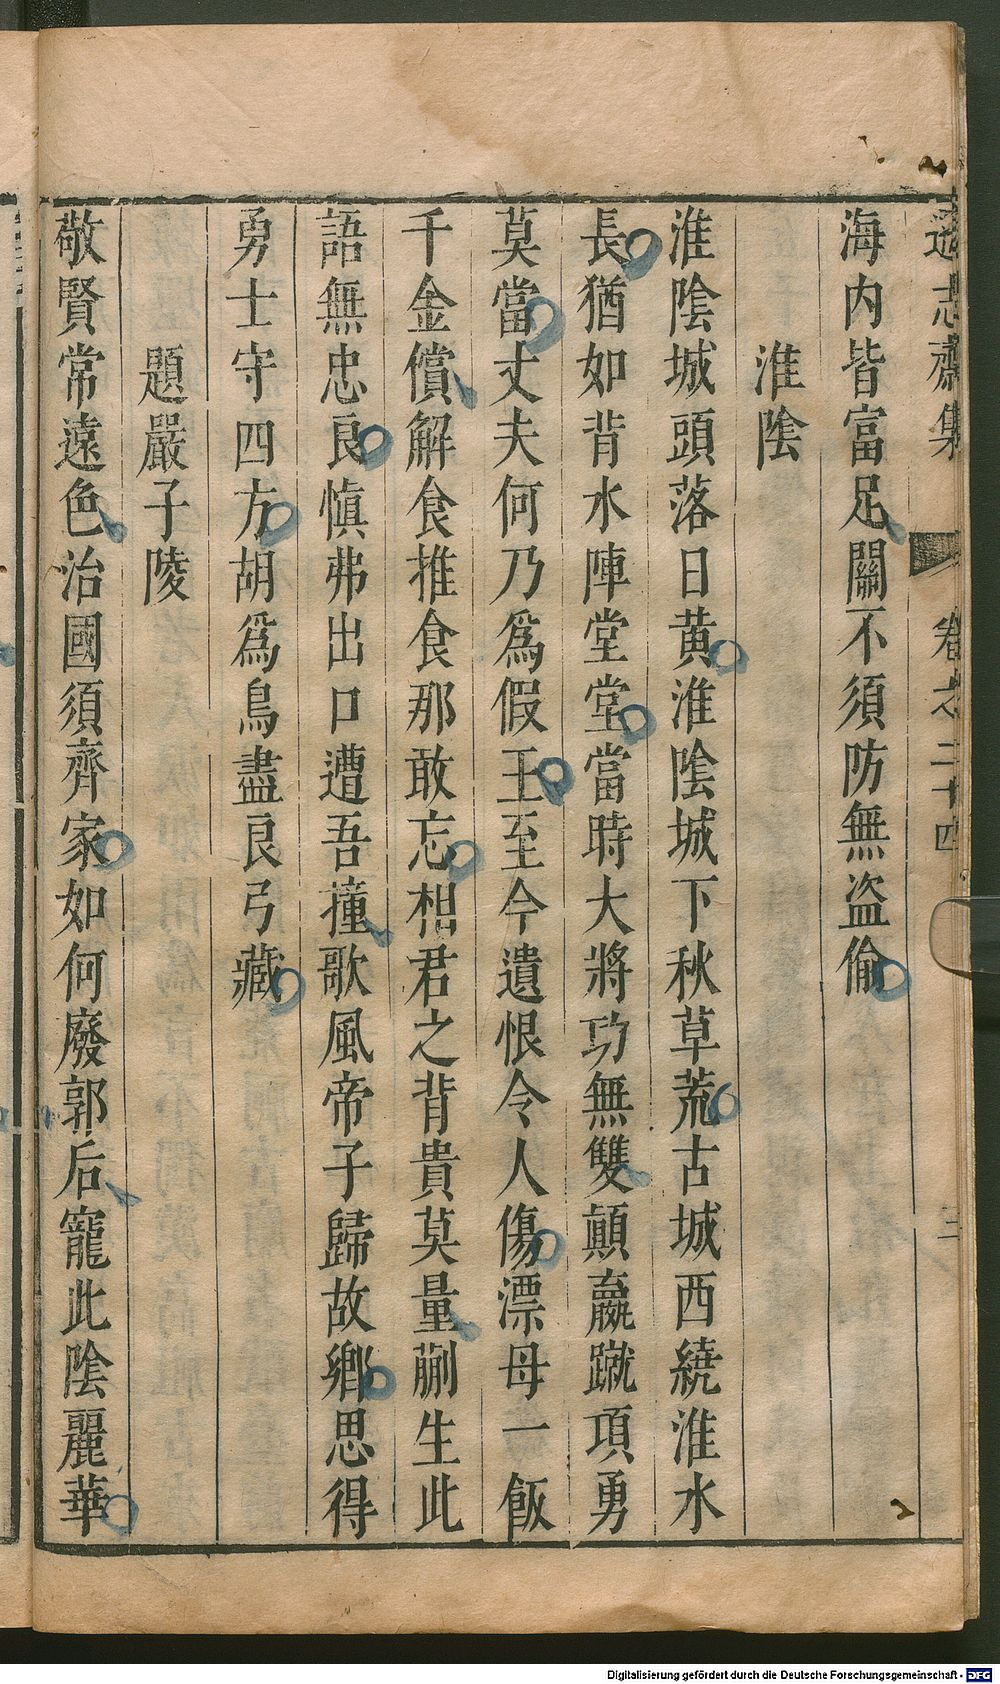 遜志齋集 卷之二十四 三
海内皆富足關不須防無盗偷
淮陰
淮陰城頭落日黄淮陰城下秋草荒古城西繞淮水
長猶如背水陣堂堂當時大將功無雙顛嬴蹴項勇
莫當丈夫何乃爲假王至今遺恨令人傷漂母一飯
千金償解食推食那敢忘相君之背貴莫量蒯生此
語無忠良愼弗出口遭吾撞歌風帝子歸故鄉思得
勇士守四方胡爲鳥盡良弓藏
題嚴子陵
敬賢常遠色治國須齊家如何廢郭后寵此陰麗華
Digitalisierung gefördert durch die Deutsche Forschungsgemeinschaft - DFG